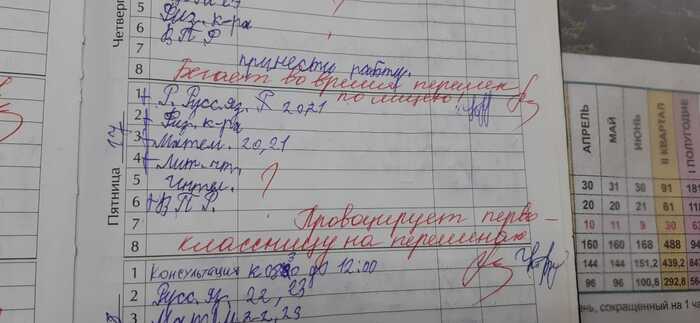 Четверг
5
6 Физ. к-ра
7 В П Р
принести работу.
8 Бегает во время перемен
по лицею!
Пятница 17
1 Р. Русс. яз. 2021
2 Физ. к-ра
3 Матем. 20,21
4 Лит. чт.
5 Интел. ?
6 В П Р.
7 Провоцирует перво-
8 классницу на переменах
1 Консультация к 12:00
2 Русс. яз. 22, 23
3
АПРЕЛЬ МАЙ ИЮНЬ II КВАРТАЛ I ПОЛУГОДИЕ
30 31 30 91
20 20 21 61
10 11 9 30
160 168 160 488
144 144 151,2 439,2
96 96 100,8 292,8
сокращенный на 1 ча